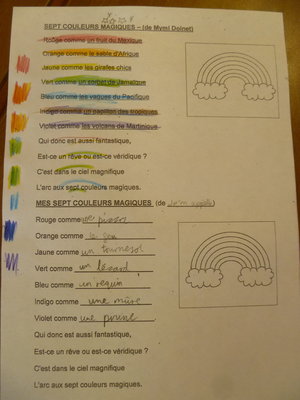 SEPT COULEURS MAGIQUES – (de Mymi Doinet)
Rouge comme un fruit du Mexique
Orange comme le sable d'Afrique
Jaune comme les girafes chics
Vert comme un sorbet de Jamaïque
Bleu comme les vagues du Pacifique
Indigo comme un papillon des tropiques
Violet comme les volcans de Martinique
Qui donc est aussi fantastique,
Est-ce un rêve ou est-ce véridique ?
C'est dans le ciel magnifique
L'arc aux sept couleurs magiques.
MES SEPT COULEURS MAGIQUES (de
Rouge comme
Orange comme le feu
Jaune comme un tournesol
Vert comme un lézard
Bleu comme un requin
Indigo comme une mûre
Violet comme une prune
Qui donc est aussi fantastique,
Est-ce un rêve ou est-ce véridique ?
C'est dans le ciel magnifique
L'arc aux sept couleurs magiques.